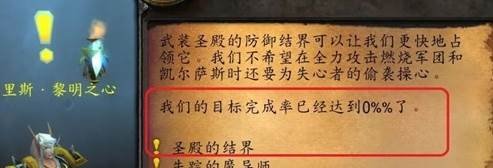 武装圣殿的防御结界可以让我们更快地占
领它。我们不希望在全力攻击燃烧军团和
凯尔萨斯时还要为失心者的偷袭操心。
里斯·黎明之心
我们的目标完成率已经达到0%%了。
圣殿的结界
失踪的魔导师